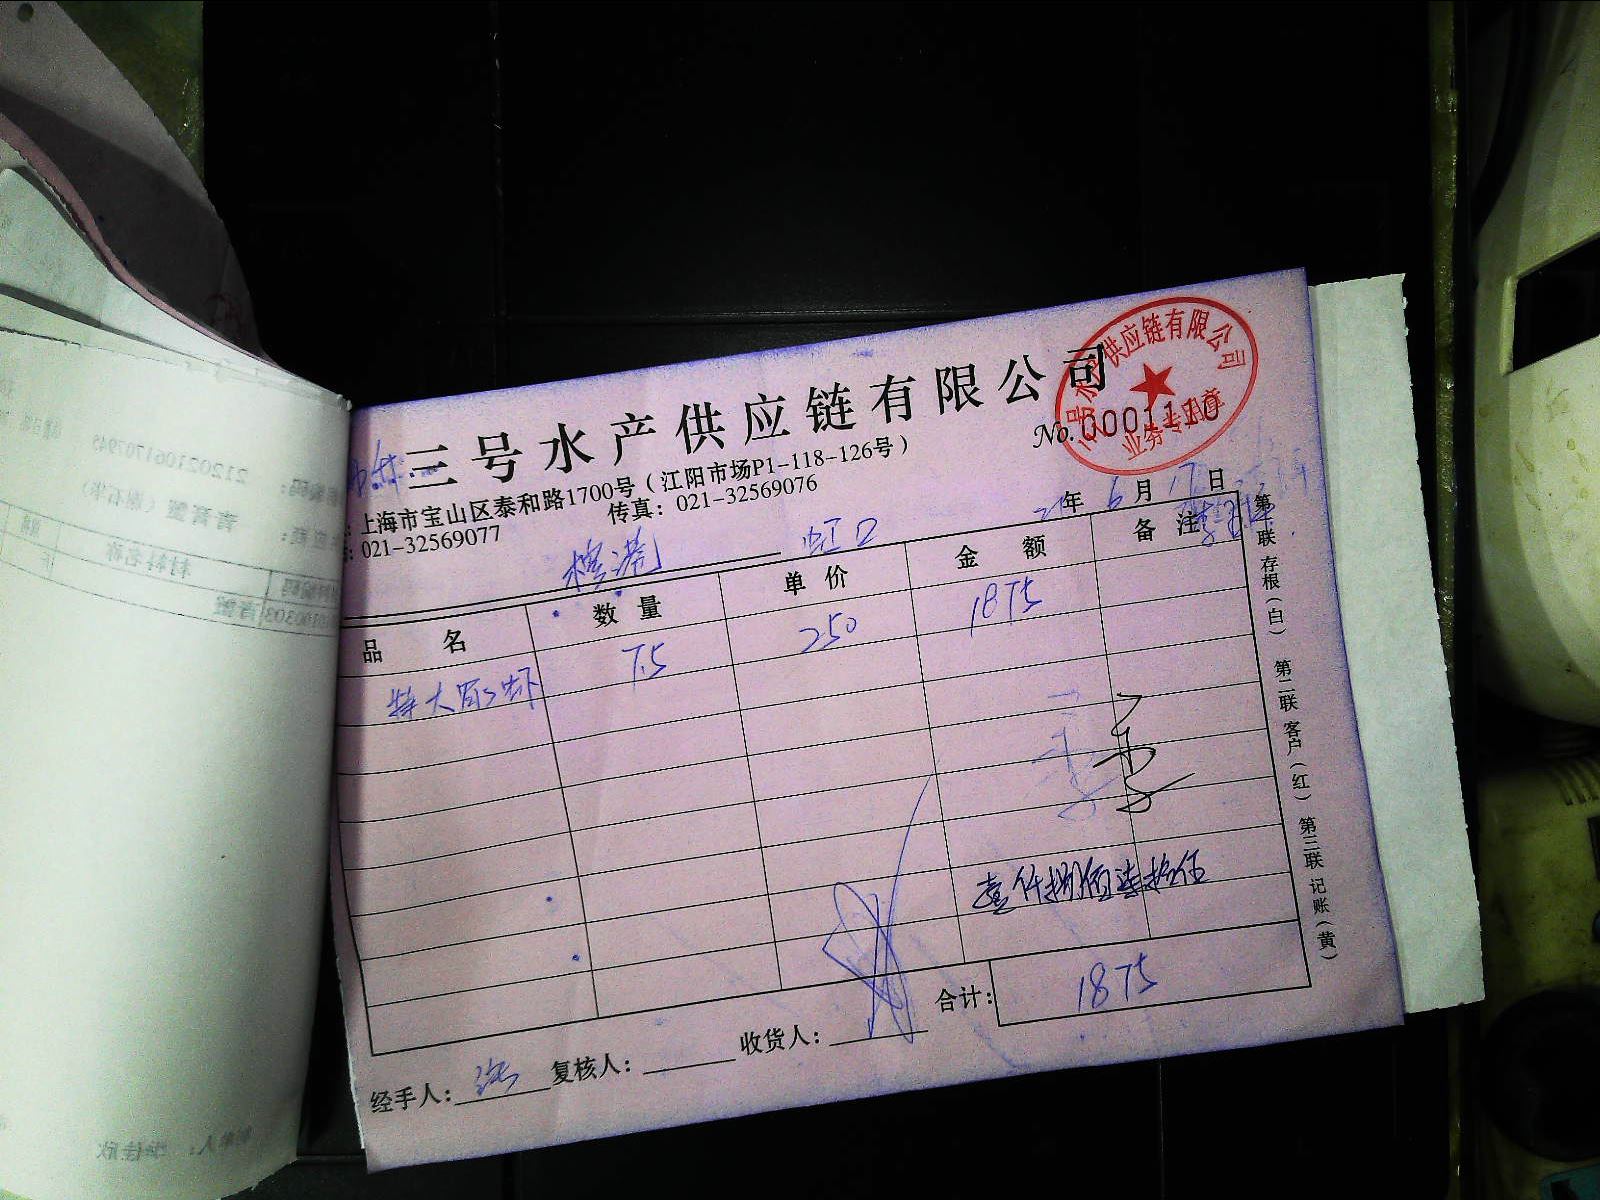 三号水产供应链有限公司
No.0001110
上海市宝山区泰和路1700号（江阳市场P1-118-126号）
021-32569077 传真：021-32569076
虹口 21年6月17日
品名 数量 单价 金额 备注
特大 虾 7.5 250 1875
壹仟捌佰柒拾伍
合计： 1875
经手人： 复核人： 收货人：
第一联 存根（白） 第二联 客户（红） 第三联 记账（黄）
水产供应链有限公司
业务专用章
212021061707945
青膏蟹
材料名称